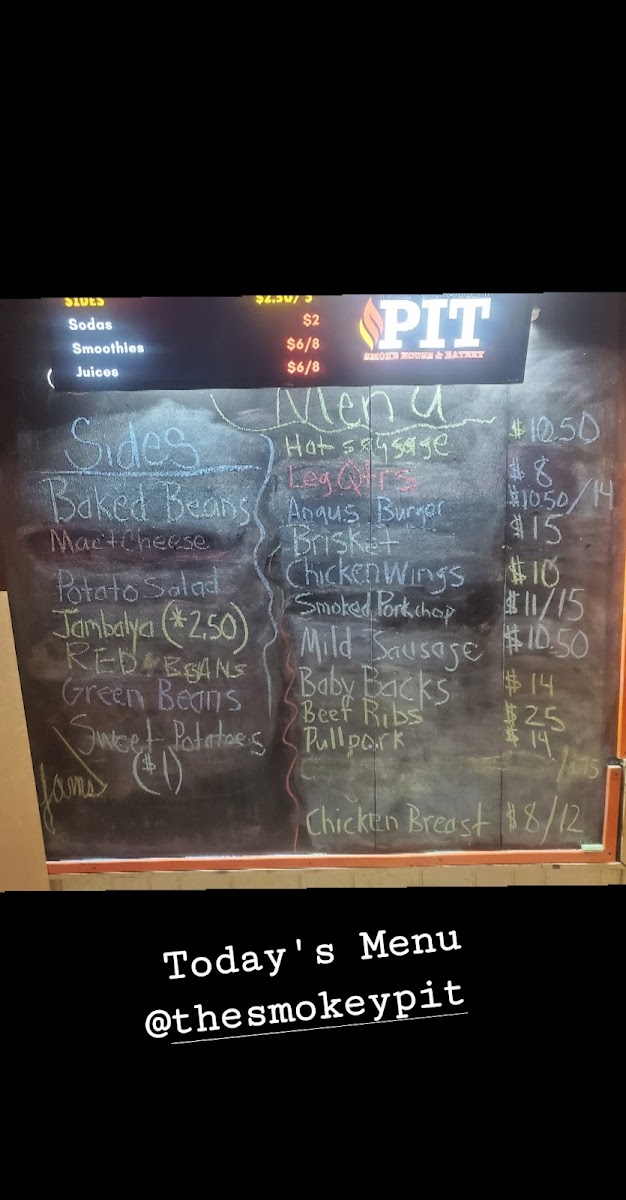 SIDES $2.50/5
Sodas $2
Smoothies $6/8
Juices $6/8
PIT
SMOKE HOUSE & EATERY
Menu
Sides
Baked Beans
Mac+Cheese
Potato Salad
Jambalya (*2.50)
RED BEANS
Green Beans
Sweet Potatoes
($1)
Hot sausage $10.50
Leg Qtrs $8
Angus Burger $10.50/14
Brisket $15
Chicken Wings $10
Smoked Porkchop $11/15
Mild Sausage $10.50
Baby Backs $14
Beef Ribs $25
Pullpork $14
Chicken Breast $8/12
Today's Menu
@thesmokeypit